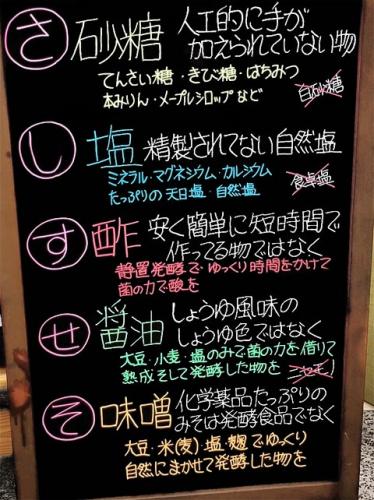 さ 砂糖 人工的に手が
加えられていない物
てんさい糖・きび糖・はちみつ
本みりん・メープルシロップなど
白砂糖
し 塩 精製されてない自然塩
ミネラル・マグネシウム・カルシウム
たっぷりの天日塩・自然塩
食卓塩
す 酢 安く簡単に短時間で
作ってる物ではなく
静置発酵で・ゆっくり時間をかけて
菌の力で酸を
せ 醤油 しょうゆ風味の
しょうゆ色ではなく
大豆・小麦・塩のみで菌の力を借りて
熟成そして発酵した物を
そ 味噌 化学薬品たっぷりの
みそは発酵食品でなく
大豆・米(麦)・塩・麹でゆっくり
自然にまかせて発酵した物を